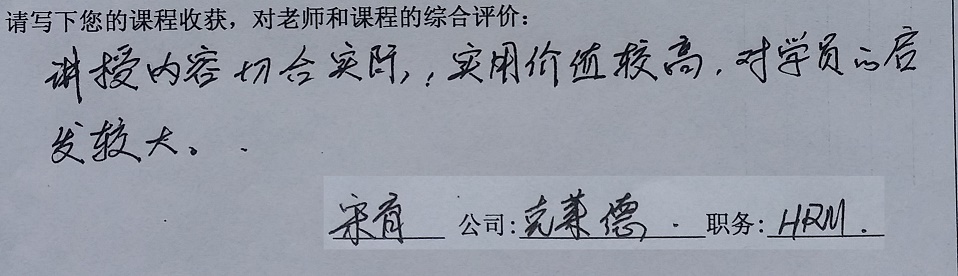 请写下您的课程收获，对老师和课程的综合评价：
讲授内容切合实际，实用价值较高，对学员的启
发较大。
宋育 公司：克莱德 职务：HRM.